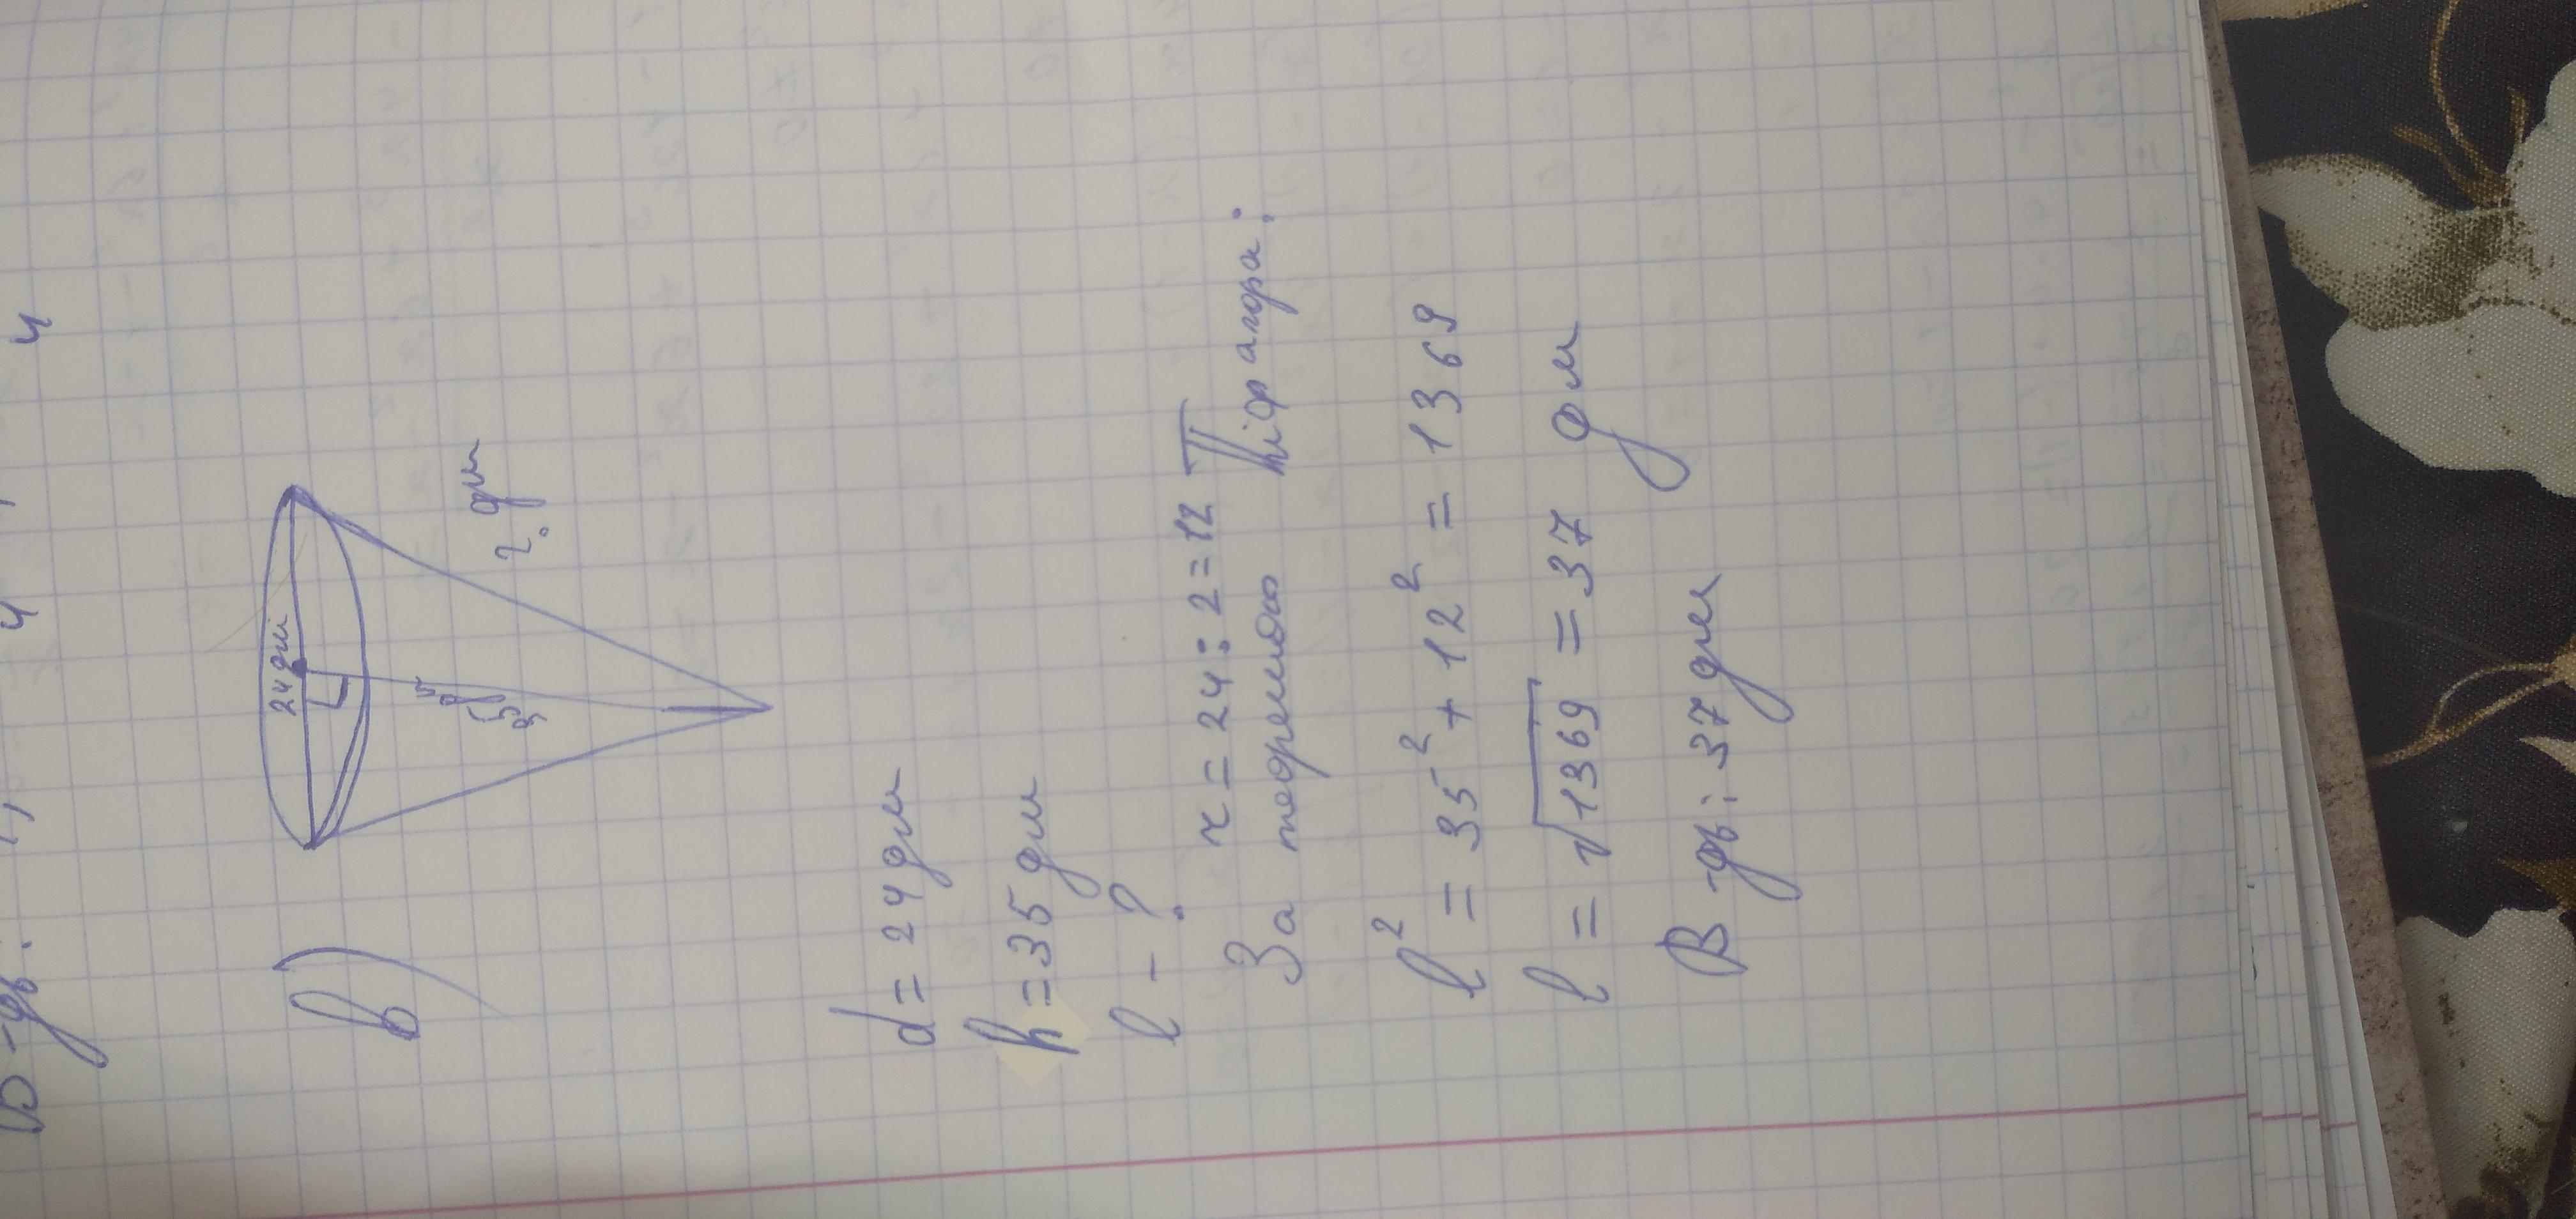 В-дь:
в)
24 дм
35 дм
? дм
d = 24 дм
h = 35 дм
l - ?
r = 24 : 2 = 12
За теоремою Піфагора:
l² = 35² + 12² = 1369
l = √1369 = 37 дм
В-дь: 37 дм